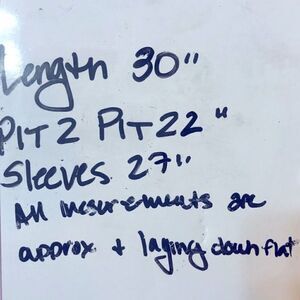 Length 30"
PIT 2 PIT 22"
Sleeves 27"
All mesurements are
approx + laying down flat